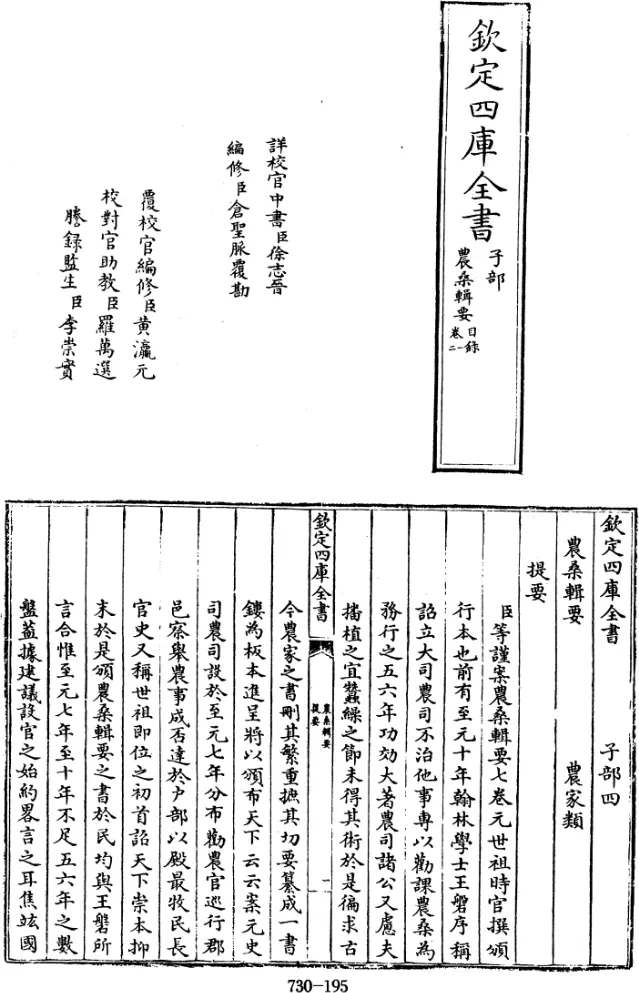 欽定四庫全書
子部
農桑輯要
目錄
卷一二
詳校官中書臣徐志晉
編修臣倉聖脈覆勘
覆校官編修臣黃瀛元
校對官助教臣羅萬選
謄錄監生臣李崇實
欽定四庫全書 子部四
農桑輯要 農家類
提要
臣等謹案農桑輯要七卷元世祖時官撰頒
行本也前有至元十年翰林學士王磐序稱
詔立大司農司不治他事專以勸課農桑為
務行之五六年功効大著農司諸公又慮夫
播植之宜蠶繰之節未得其術於是徧求古
欽定四庫全書
農桑輯要
提要
一
今農家之書刪其繁重摭其切要纂成一書
鏤為板本進呈將以頒布天下云云案元史
司農司設於至元七年分布勸農官巡行郡
邑察舉農事成否達於户部以殿最牧民長
官史又稱世祖即位之初首詔天下崇本抑
末於是頒農桑輯要之書於民均與王磐所
言合惟至元七年至十年不足五六年之數
盤蓋據建議設官之始約畧言之耳焦竑國
730-195